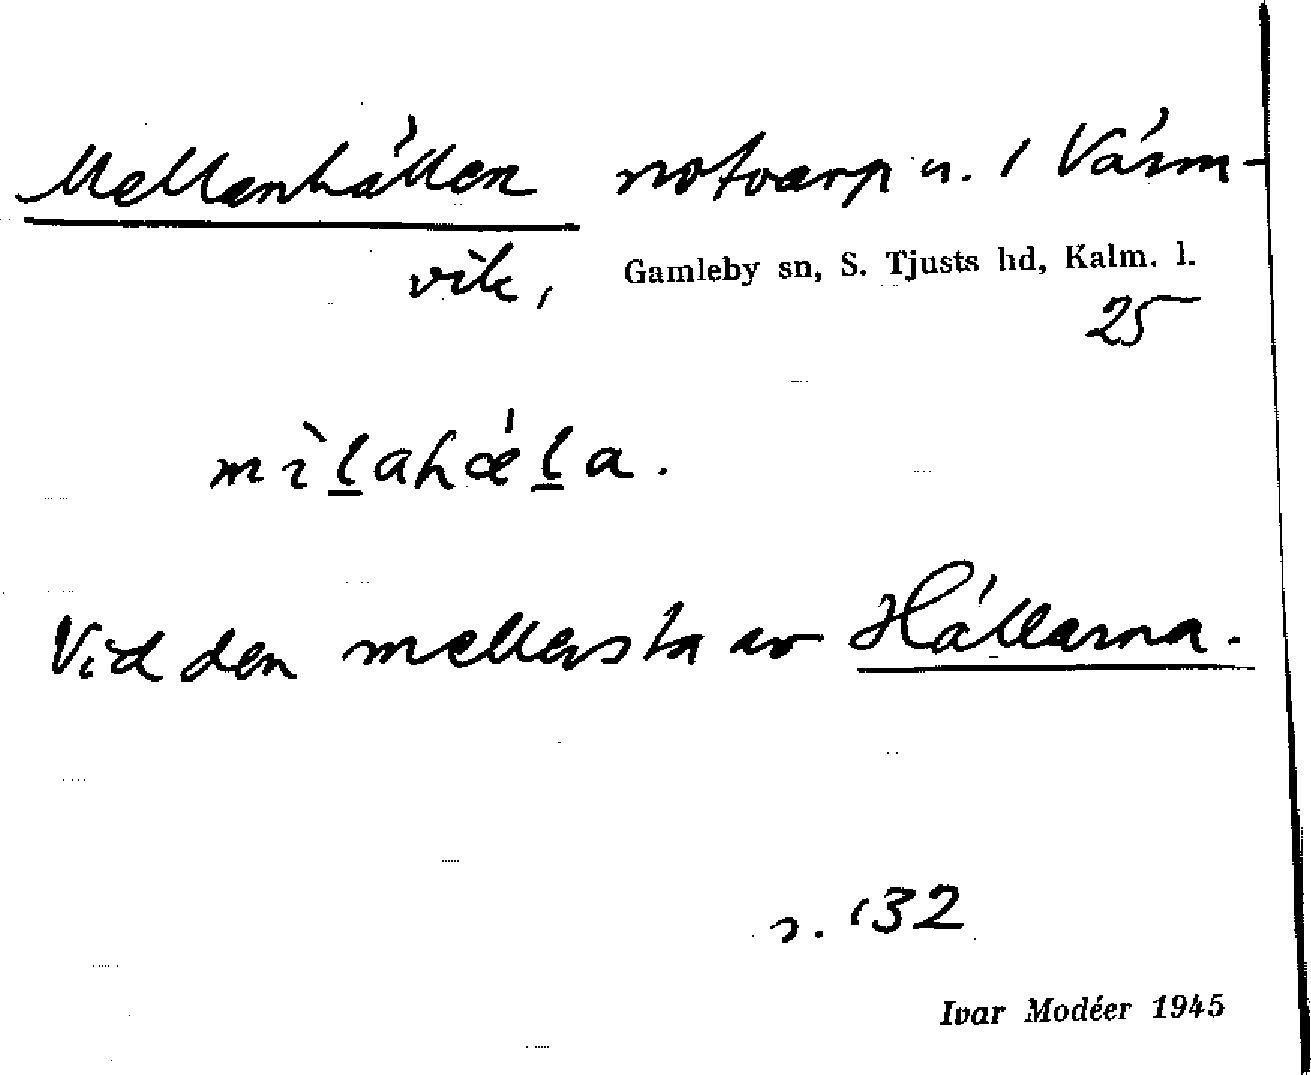 Mellanhällen notvarp n. i Värm-
vik,
Gamleby sn, S. Tjusts hd, Kalm. l.
25
mìl̠ahæ̍l̠a.
Vid den mellersta av Hällarna.
s. 132
Ivar Modéer 1945